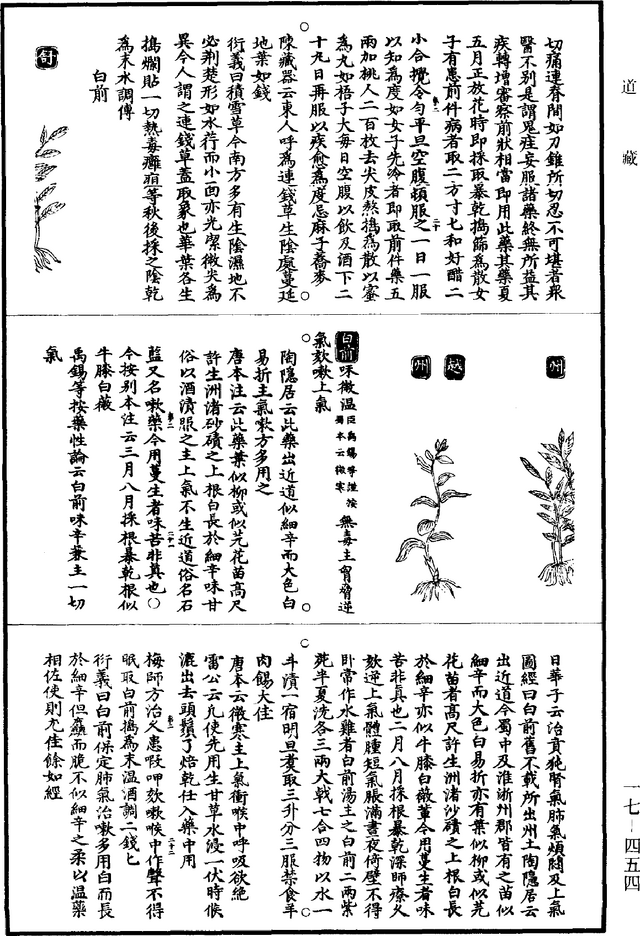 道藏
切痛連脊間如刀錐所切忍不可堪者衆
醫不別是謂鬼疰妄服諸藥終無所益其
疾轉增審察前狀相當即用此藥其藥夏
五月正放花時即採取暴乾搗篩爲散女
子有患前件病者取二方寸匕和好醋二
小合攪令勻平旦空腹頓服之一日一服
以知爲度如女子先冷者即取前件藥五
兩加桃人二百枚去尖皮熬搗爲散以蜜
爲丸如梧子大每日空腹以飲及酒下二
十九日再服以疾愈爲度忌麻子蕎麥
陳藏器云東人呼爲連錢草生陰處蔓延
地葉如錢
衍義曰積雪草今南方多有生陰濕地不
必荆楚形如水荇而小面亦光潔微尖爲
異今人謂之連錢草蓋取象也華葉各生
擣爛貼一切熱毒癰疽等秋後採之陰乾
爲末水調傅
白前
舒
州
越
州
白前味微温臣禹錫等謹按蜀本云微寒無毒主胷脅逆
氣欬嗽上氣
陶隱居云此藥出近道似細辛而大色白
易折主氣嗽方多用之
唐本注云此藥葉似柳或似芫花苗高尺
許生洲渚砂磧之上根白長於細辛味甘
俗以酒漬服之主上氣不生近道俗名石
藍又名嗽藥今用蔓生者味苦非真也○
今按別本注云二月八月採根暴乾根似
牛膝白薇
禹錫等按藥性論云白前味辛兼主一切
氣
日華子云治賁㹠腎氣肺氣煩悶及上氣
圖經曰白前舊不載所出州土陶隱居云
出近道今蜀中及淮浙州郡皆有之苗似
細辛而大色白易折亦有葉似柳或似芫
花苗者高尺許生洲渚沙磧之上根白長
於細辛亦似牛膝白薇輩今用蔓生者味
苦非真也二月八月採根暴乾深師療久
欬逆上氣體腫短氣脹滿晝夜倚壁不得
卧常作水雞者白前湯主之白前二兩紫
菀半夏洗各三兩大戟七合四物以水一
斗漬一宿明旦煮取三升分三服禁食羊
肉餳大佳
唐本云微寒主上氣衝喉中呼吸欲絶
雷公云凡使先用生甘草水浸一伏時候
漉出去頭鬚了焙乾任入藥中用
梅師方治久患呀呷欬嗽喉中作聲不得
眠取白前擣爲末温酒調二錢匕
衍義曰白前保定肺氣治嗽多用白而長
於細辛但麤而脆不似細辛之柔以温藥
相佐使則尤佳餘如經
一七－四五四